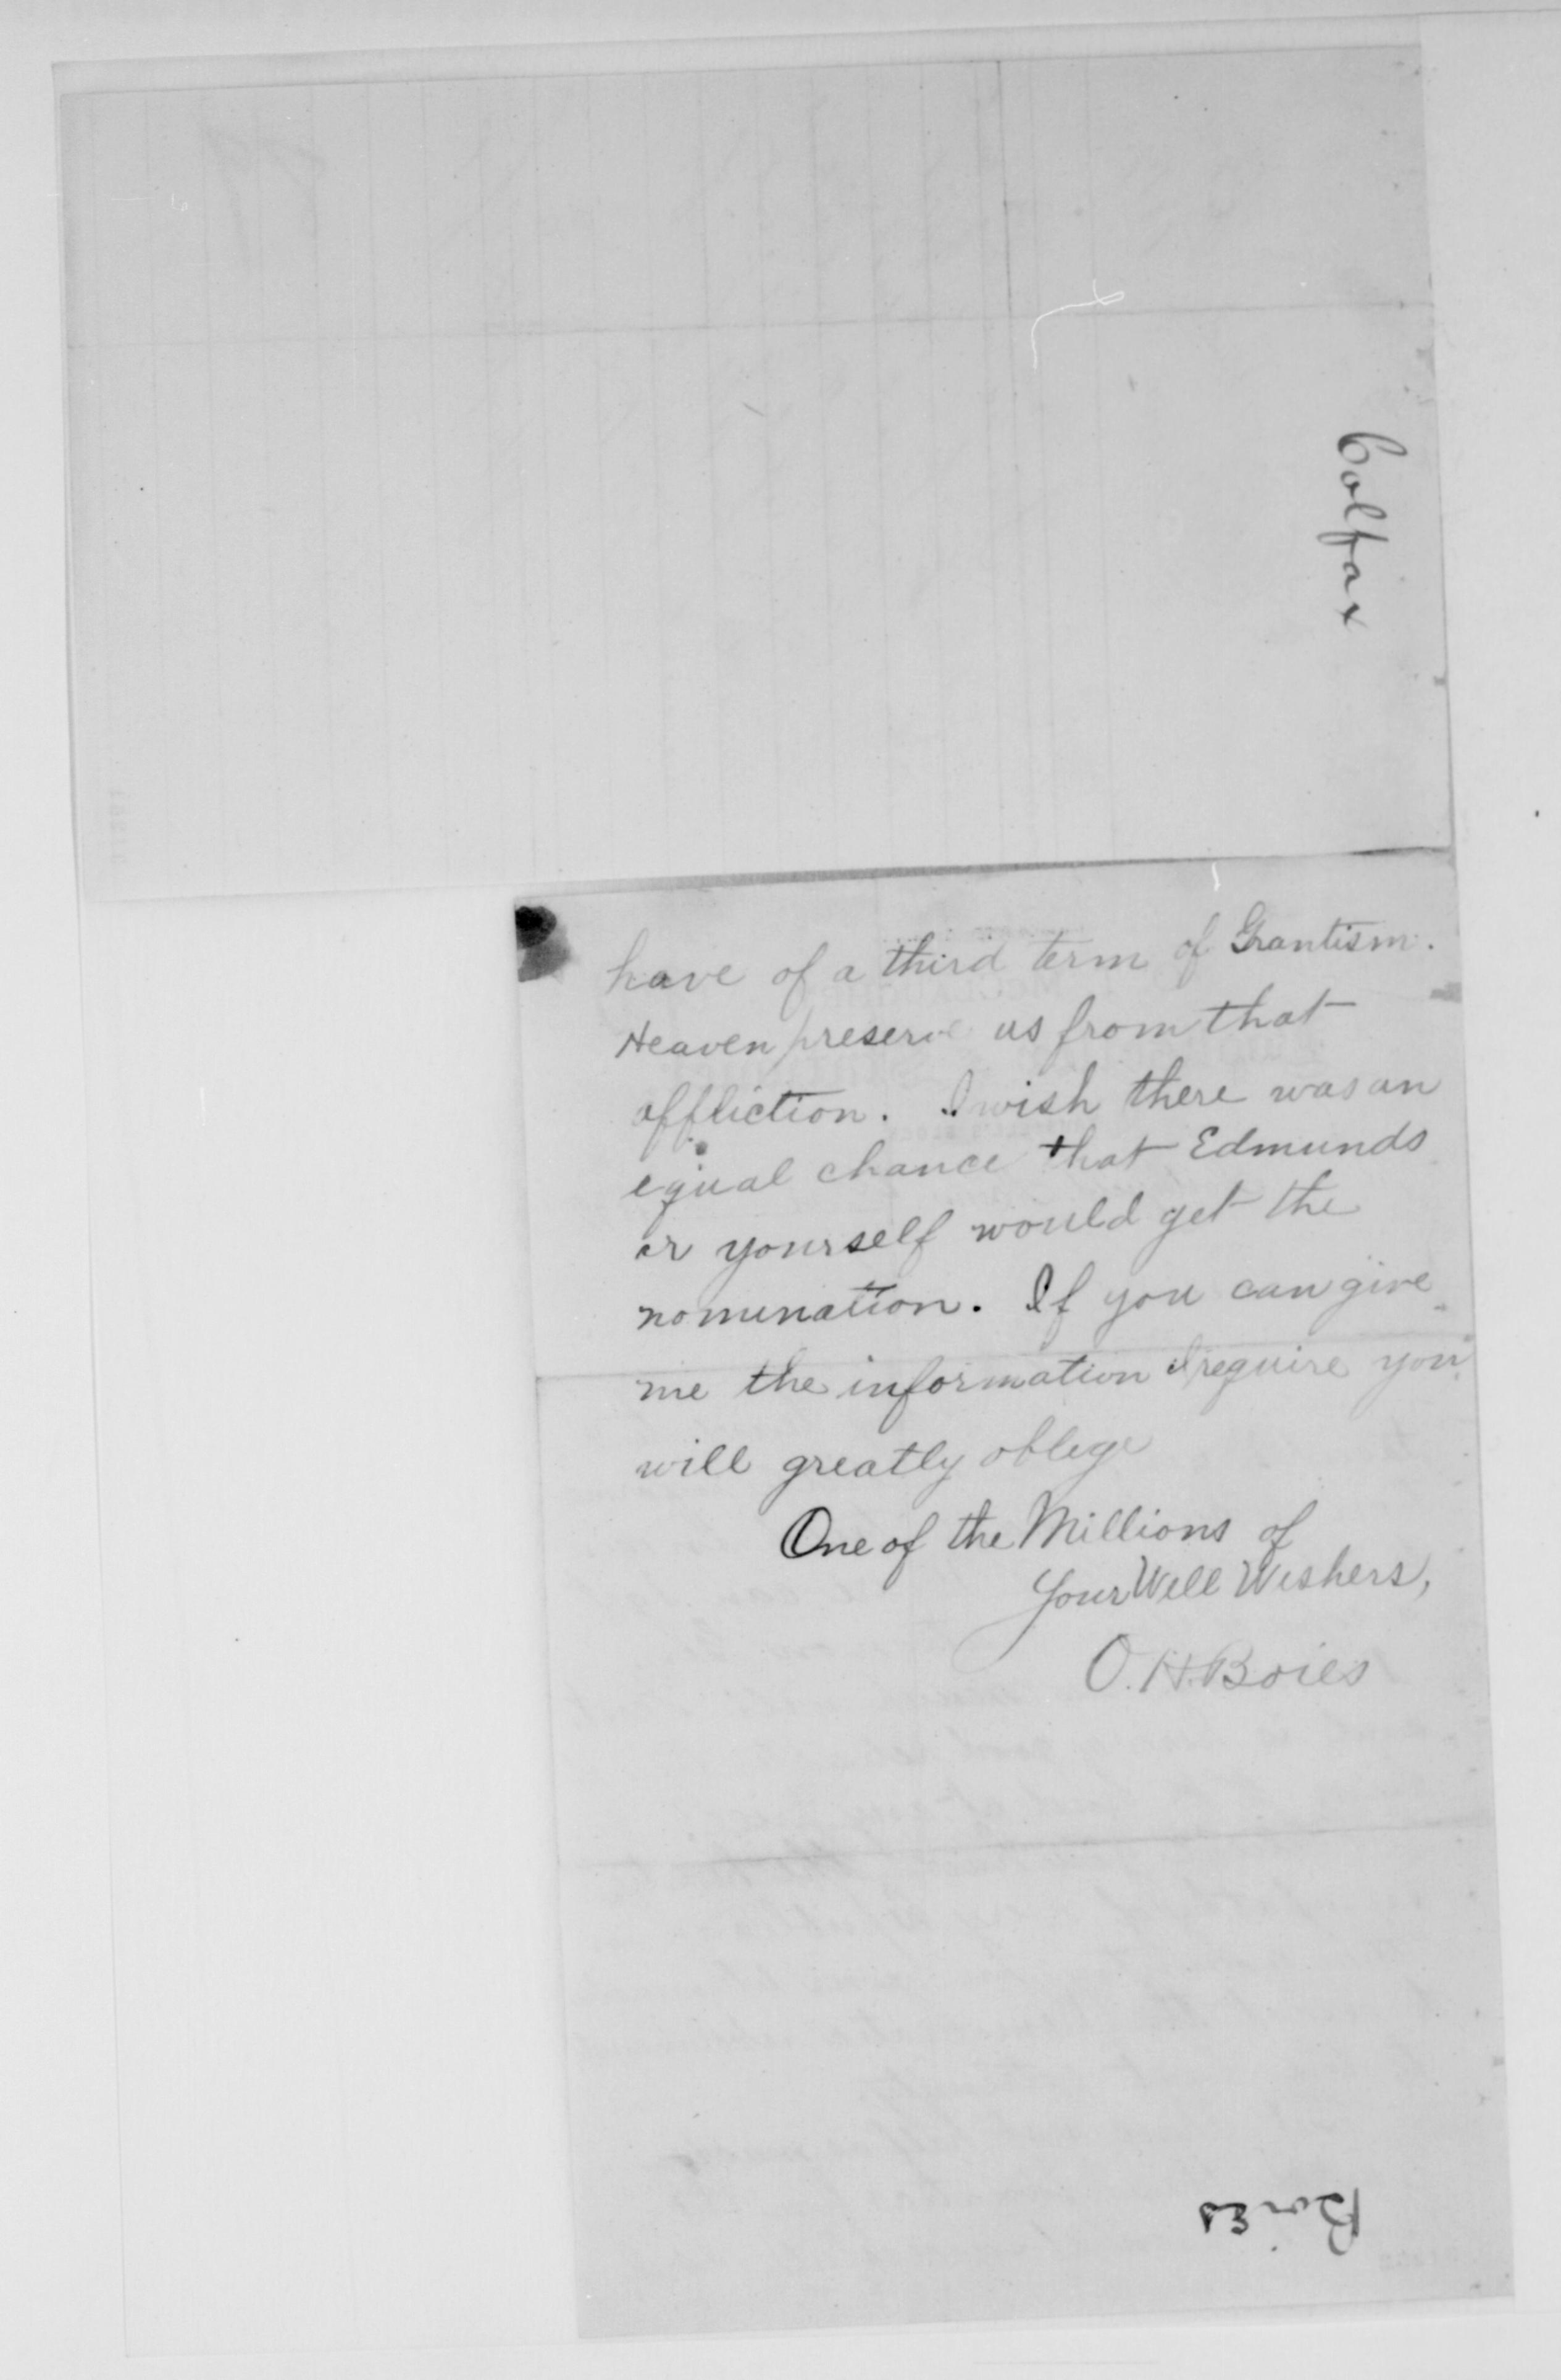 Colfax
have of a third term of Grantism.
Heaven preserve us from that
affliction. I wish there was an
equal chance that Edmunds
or yourself would get the
nomination. If you can give
me the information I require you
will greatly oblege
One of the Millions of
Your Well Wishers,
O. H. Boies
Boies